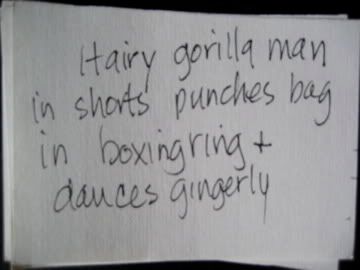 Hairy gorilla man
in shorts punches bag
in boxingring +
dances gingerly